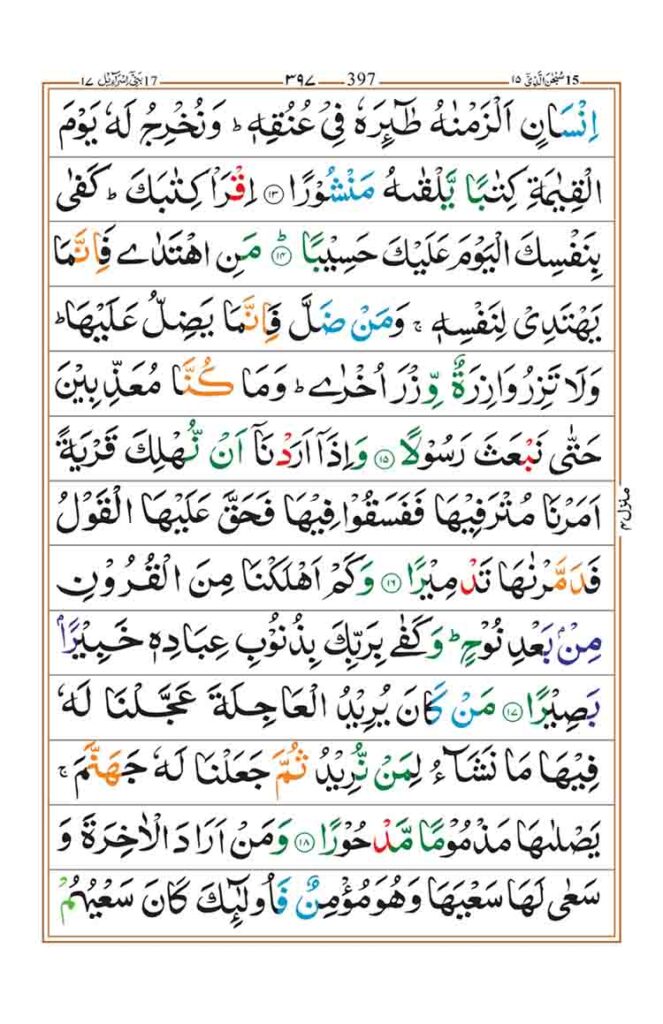 ١٧ بَنِیْٓ اِسْرَآءِیْل 17 ٣٩٧ 397 ١٥ سُبْحٰنَ الَّذِیْٓ 15
اِنْسَانٍ اَلْزَمْنٰهُ طٰٓئِرَهٗ فِیْ عُنُقِهٖ ؕ وَنُخْرِجُ لَهٗ یَوْمَ
الْقِیٰمَةِ كِتٰبًا یَّلْقٰىهُ مَنْشُوْرًا ۝١٣ اِقْرَاْ كِتٰبَكَ ؕ كَفٰی
بِنَفْسِكَ الْیَوْمَ عَلَیْكَ حَسِیْبًا ؕ۝١٤ مَنِ اهْتَدٰی فَاِنَّمَا
یَهْتَدِیْ لِنَفْسِهٖ ۚ وَمَنْ ضَلَّ فَاِنَّمَا یَضِلُّ عَلَیْهَا ؕ
وَلَا تَزِرُ وَازِرَةٌ وِّزْرَ اُخْرٰی ؕ وَمَا كُنَّا مُعَذِّبِیْنَ
حَتّٰی نَبْعَثَ رَسُوْلًا ۝١٥ وَاِذَاۤ اَرَدْنَاۤ اَنْ نُّهْلِكَ قَرْیَةً
اَمَرْنَا مُتْرَفِیْهَا فَفَسَقُوْا فِیْهَا فَحَقَّ عَلَیْهَا الْقَوْلُ
فَدَمَّرْنٰهَا تَدْمِیْرًا ۝١٦ وَكَمْ اَهْلَكْنَا مِنَ الْقُرُوْنِ
مِنْۢ بَعْدِ نُوْحٍ ؕ وَكَفٰی بِرَبِّكَ بِذُنُوْبِ عِبَادِهٖ خَبِیْرًۢا
بَصِیْرًا ۝١٧ مَنْ كَانَ یُرِیْدُ الْعَاجِلَةَ عَجَّلْنَا لَهٗ
فِیْهَا مَا نَشَآءُ لِمَنْ نُّرِیْدُ ثُمَّ جَعَلْنَا لَهٗ جَهَنَّمَ ۚ
یَصْلٰىهَا مَذْمُوْمًا مَّدْحُوْرًا ۝١٨ وَمَنْ اَرَادَ الْاٰخِرَةَ وَ
سَعٰی لَهَا سَعْیَهَا وَهُوَ مُؤْمِنٌ فَاُولٰٓئِكَ كَانَ سَعْیُهُمْ
منزل ٤